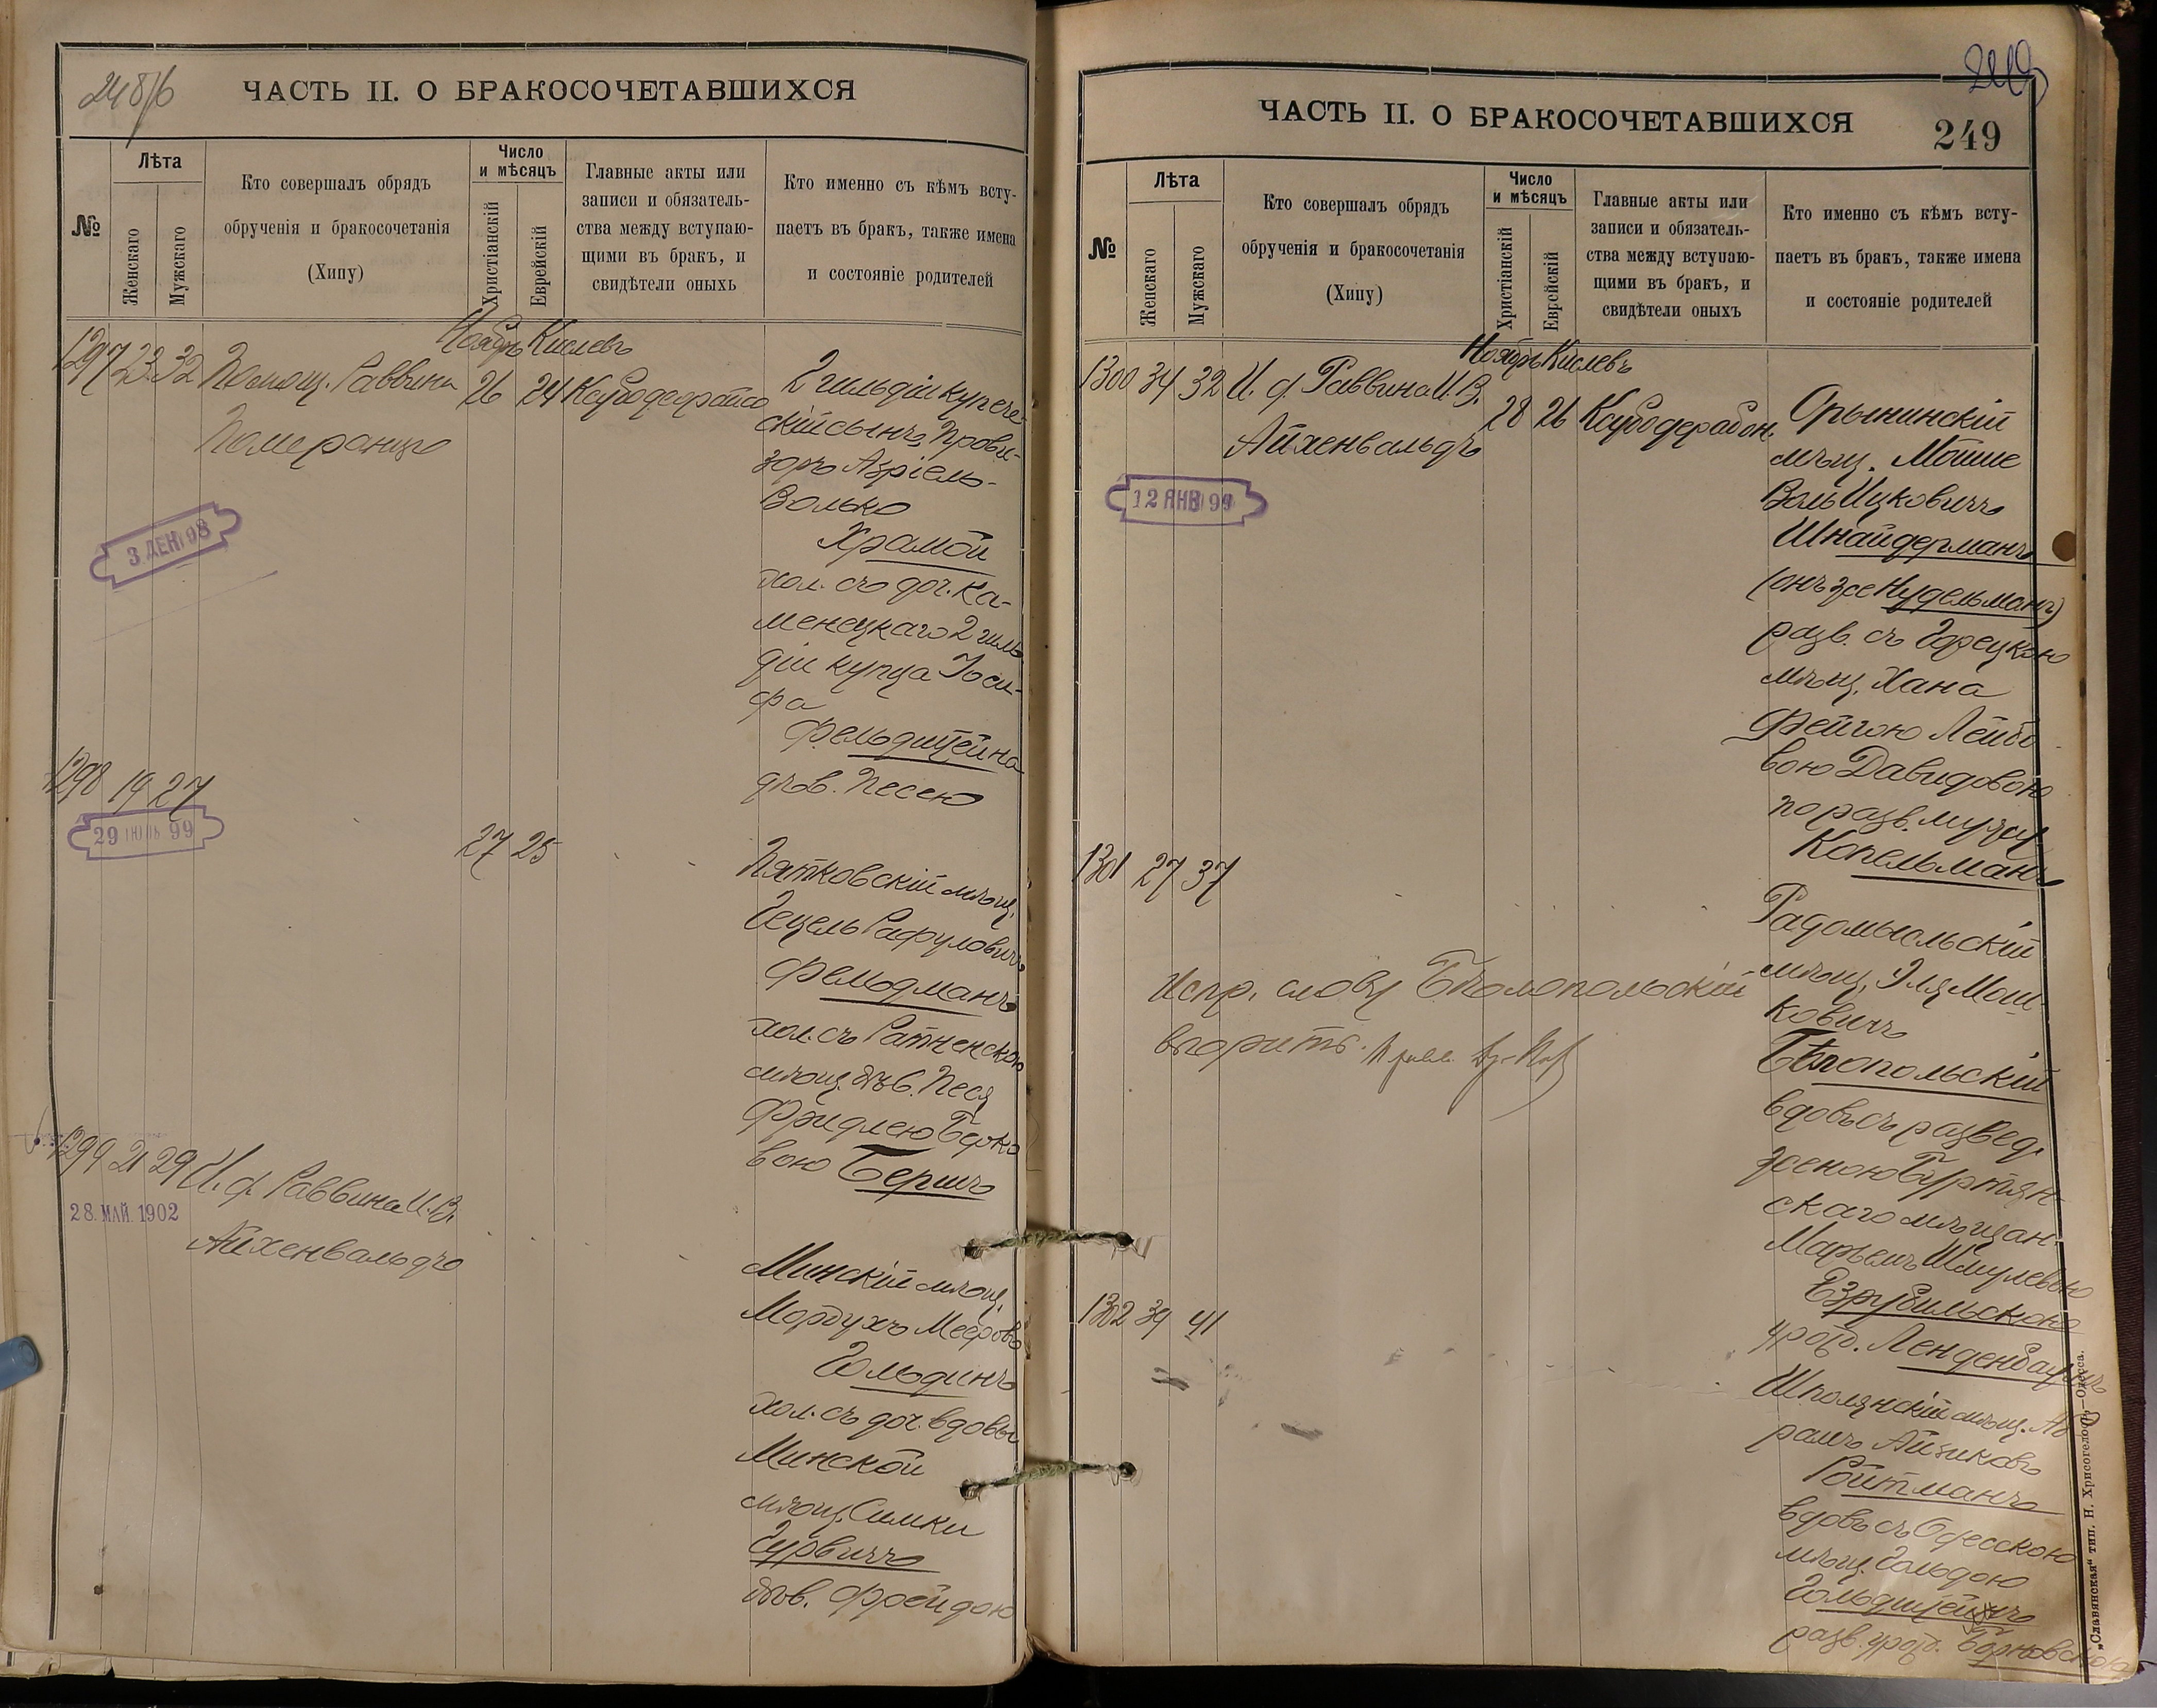 248/б
ЧАСТЬ II. О БРАКОСОЧЕТАВШИХСЯ
№
Лѣта
Женскаго
Мужскаго
Кто совершалъ обрядъ
обрученія и бракосочетанія
(Хипу)
Число
и мѣсяцъ
Христіанскій
Еврейскій
Главные акты или
записи и обязатель-
ства между вступаю-
щими въ бракъ, и
свидѣтели оныхъ
Кто именно съ кѣмъ всту-
паетъ въ бракъ, также имена
и состояніе родителей
Ноябрь Кислевъ
1297 23 32 Помощ. Раввина 26 24
Померанцъ
2 гильдіи купече-
скій сынъ Прови-
зоръ Азріель-
Волько
Храмой
хол. съ доч. Ка-
менецкаго 2 гиль
діи купца Іоси-
фа
Фельдштейна
дѣв. Песею
3 ДЕК 98
1298 19 27
29 ІЮЛЬ 99
27 25
Пятковскій мѣщ.
Гецель Рафуловичъ
Фельдманъ
хол. съ Ратненскою
мѣщ. дѣв. Песя
Фрідлею Берко
вою Беришъ
1299 21 29 И. д. Раввина И. В.
Айхенвальдъ
28. МАЙ. 1902
Минскій мѣщ.
Мордухъ Мееровъ
Гольдинъ
хол. съ доч. вдовы
Минской
мѣщ. Симки
Гурвичъ
дѣв. Фрейдою
249
ЧАСТЬ II. О БРАКОСОЧЕТАВШИХСЯ
249
№
Лѣта
Женскаго
Мужскаго
Кто совершалъ обрядъ
обрученія и бракосочетанія
(Хипу)
Число
и мѣсяцъ
Христіанскій
Еврейскій
Главные акты или
записи и обязатель-
ства между вступаю-
щими въ бракъ, и
свидѣтели оныхъ
Кто именно съ кѣмъ всту-
паетъ въ бракъ, также имена
и состояніе родителей
Ноябрь Кислевъ
1300 34 32 И. д. Раввина И. В. 28 26
Айхенвальдъ
12 ЯНВ 99
Орынинскій
мѣщ. Мошие
Воль Ицковичъ
Шнайдерманъ
(онъ же Нудельманъ)
разв. съ Горецкою
мѣщ. Хана
Фейгою Лейбо
вою Давидовою
по разв. мужу
Копельманъ
1301 27 37
Радомысльскій
мѣщ. Эля Мош-
ковичъ
Бѣлопольскій
вдовъ съ развед.
женою
скаго мѣщан.
Марьемъ Шмулевою
урожд. Ленденбаумъ
Испр. слову Бѣлопольскій
вѣрить.
1302 39 41
Шполянскій мѣщ. Аб
рамъ Айзиковъ
Ройтманъ
вдовъ съ Одесскою
мѣщ. Гольдою
Гольдштейнъ
разв. урожд.
„Славянская“ тип. Н. Хрисогелосъ.—Одесса.